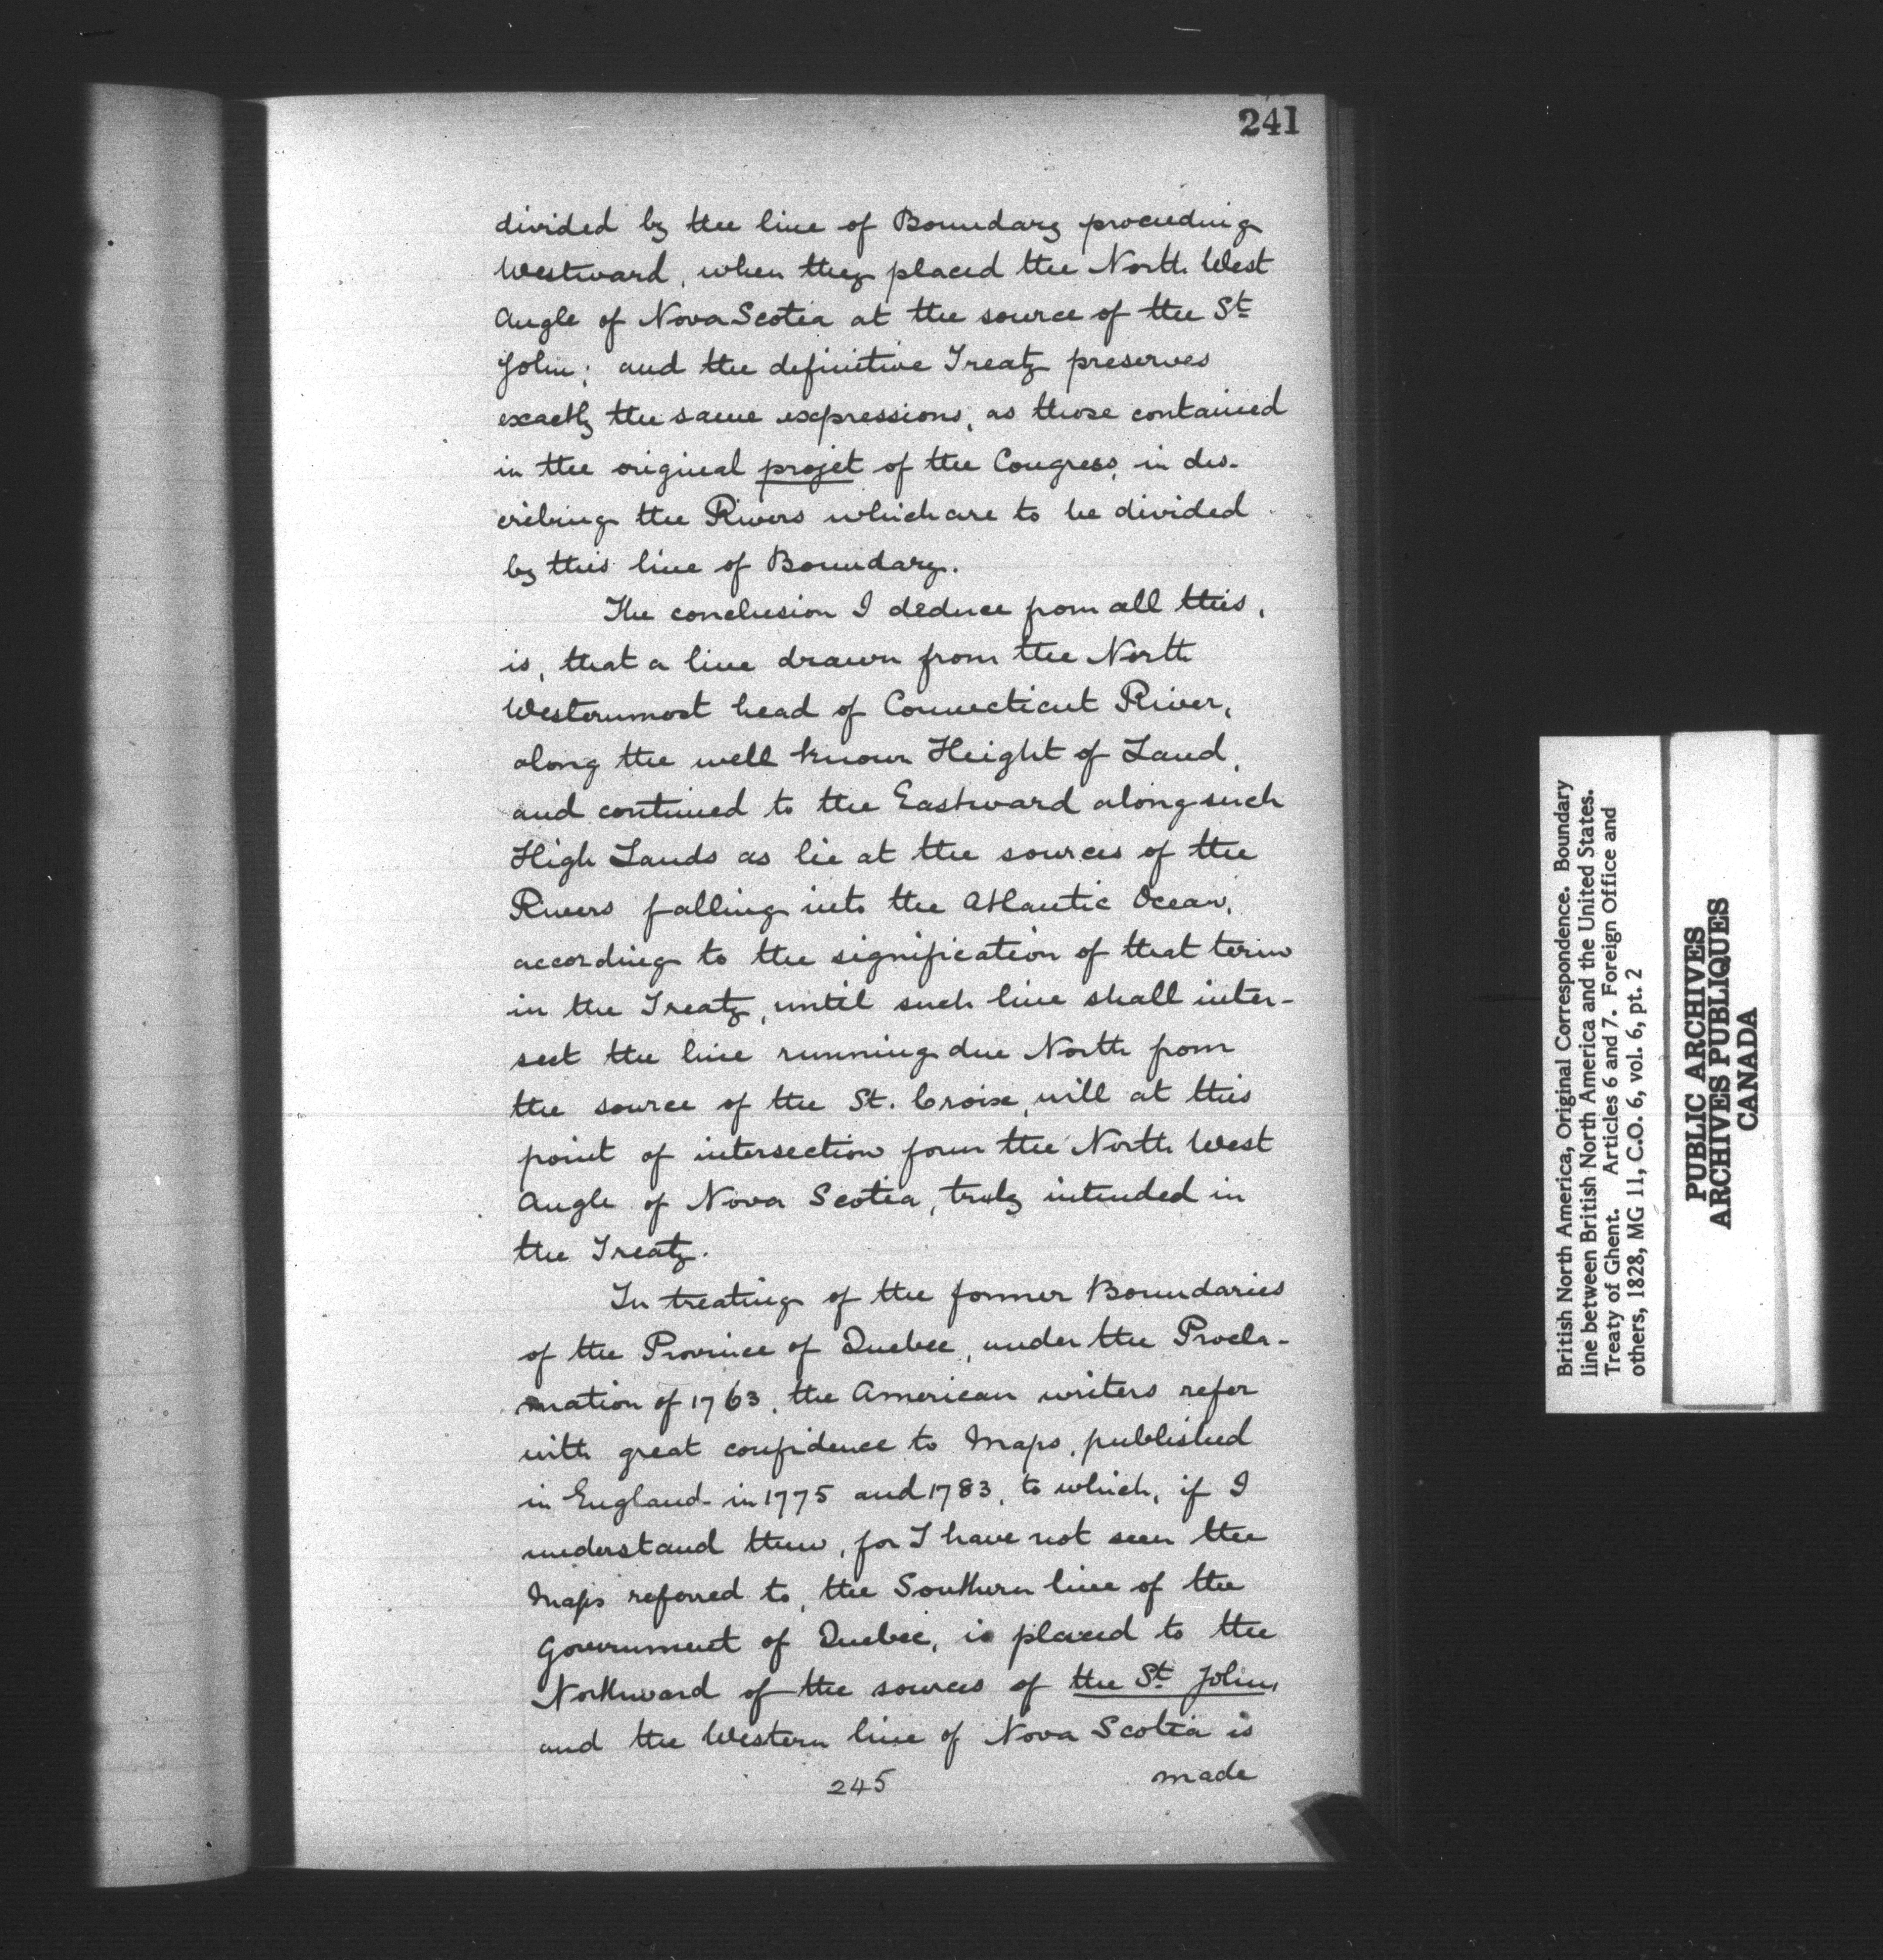 241
divided by the line of Boundary proceeding
Westward, when they placed the North West
Angle of Nova Scotia at the source of the St
John; and the definitive Treaty preserves
exactly the same expressions, as those contained
in the original projet of the Congress, in des-
cribing the Rivers which are to be divided
by this line of Boundary.
The conclusion I deduce from all this,
is, that a line drawn from the North
Westernmost head of Connecticut River,
along the well known Height of Land,
and continued to the Eastward along such
High Lands as lie at the sources of the
Rivers falling into the Atlantic Ocean,
according to the signification of that term
in the Treaty, until such line shall inter-
sect the line running due North from
the source of the St. Croix, will at this
point of intersection form the North West
Angle of Nova Scotia, truly intended in
the Treaty.
In treating of the former Boundaries
of the Province of Quebec, under the Procla-
mation of 1763, the American writers refer
with great confidence to Maps, published
in England in 1775 and 1783, to which, if I
understand them, for I have not seen the
Maps referred to, the Southern line of the
Government of Quebec, is placed to the
Northward of the sources of the St John,
and the Western line of Nova Scotia is
245
made
British North America, Original Correspondence. Boundary
line between British North America and the United States.
Treaty of Ghent. Articles 6 and 7. Foreign Office and
others, 1828, MG 11, C.O. 6, vol. 6, pt. 2
PUBLIC ARCHIVES
ARCHIVES PUBLIQUES
CANADA